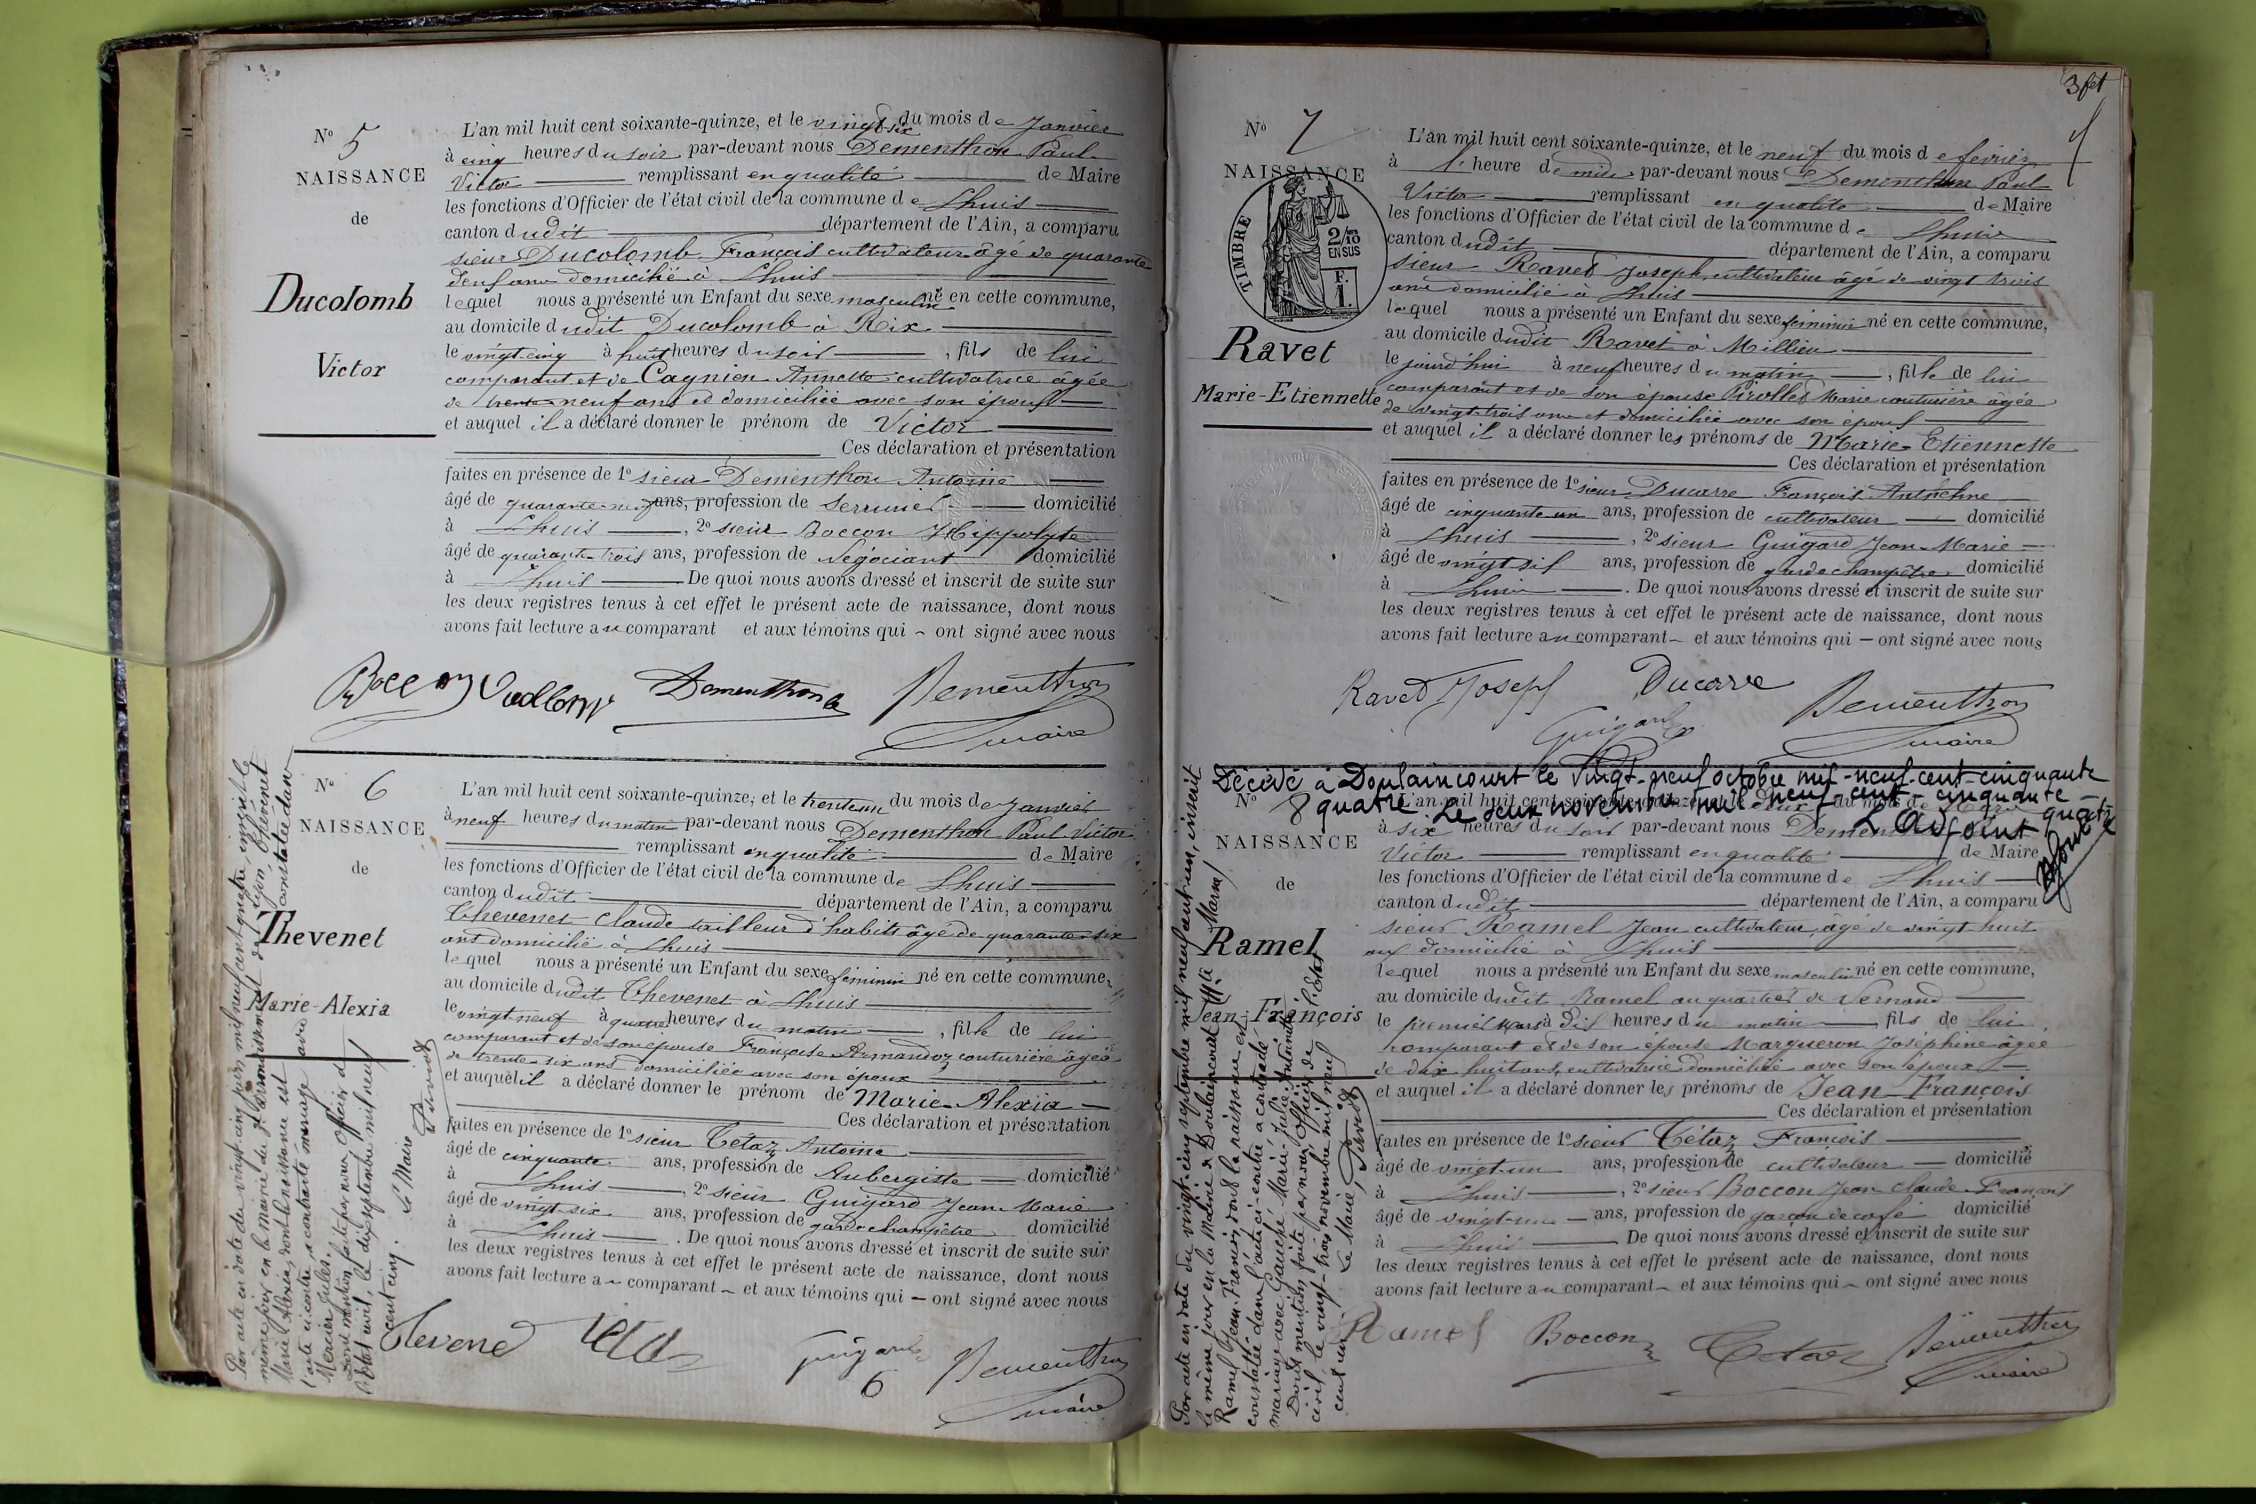 3 fet
N° 5
NAISSANCE
de
Ducolomb
Victor
L'an mil huit cent soixante-quinze, et le vingt six du mois de Janvier
à cinq heures du soir par-devant nous Dementhon Paul
Victor remplissant en qualité de Maire
les fonctions d'Officier de l'état civil de la commune de Lhuis
canton dudit département de l'Ain, a comparu
sieur Ducolomb François cultivateur âgé de quarante
neuf ans domicilié à Lhuis
lequel nous a présenté un Enfant du sexe masculin né en cette commune,
au domicile dudit Ducolomb à Rix
le vingt-cinq à huit heures du soir , fils de lui
comparant et de Cagnien Annette cultivatrice âgée
de trente-neuf ans et domiciliée avec son époux
et auquel il a déclaré donner le prénom de Victor
Ces déclaration et présentation
faites en présence de 1° sieur Dementhon Antoine
âgé de quarante-neuf ans, profession de serrurier domicilié
à Lhuis , 2° sieur Boccon Hippolyte
âgé de quarante-trois ans, profession de Négociant domicilié
à Lhuis De quoi nous avons dressé et inscrit de suite sur
les deux registres tenus à cet effet le présent acte de naissance, dont nous
avons fait lecture au comparant et aux témoins qui ont signé avec nous
Boccon Dementhon Dementhon
maire
N° 6
NAISSANCE
de
Thevenet
Marie-Alexia
L'an mil huit cent soixante-quinze, et le trente un du mois de Janvier
à neuf heures du matin par-devant nous Dementhon Paul Victor
remplissant en qualité de Maire
les fonctions d'Officier de l'état civil de la commune de Lhuis
canton dudit département de l'Ain, a comparu
Thevenet Claude tailleur d'habits âgé de quarante-six
ans domicilié à Lhuis
lequel nous a présenté un Enfant du sexe féminin né en cette commune,
au domicile dudit Thevenet à Lhuis
le vingt-neuf à quatre heures du matin , fille de lui
comparant et de son épouse Françoise Armandoz couturière âgée
de trente-six ans domiciliée avec son époux
et auquel il a déclaré donner le prénom de Marie-Alexia
Ces déclaration et présentation
faites en présence de 1° sieur Tétaz Antoine
âgé de cinquante ans, profession de Aubergiste domicilié
à Lhuis , 2° sieur Guigard Jean Marie
âgé de vingt-six ans, profession de garde champêtre domicilié
à Lhuis . De quoi nous avons dressé et inscrit de suite sur
les deux registres tenus à cet effet le présent acte de naissance, dont nous
avons fait lecture au comparant et aux témoins qui ont signé avec nous
Thevenet Guigard Dementhon
6 maire
Par acte en date du vingt-cinq juin mil neuf cent quatre, inscrit le
même jour en la mairie du arrondissement de Lyon, Thevenet
Marie Alexia, dont la naissance est constatée dans
l'acte ci-contre, a contracté mariage avec
Mercier Jules.
Dont mention faite par nous, Officier de
l'Etat civil, le dix septembre mil neuf
cent cinq. Le Maire
N° 7
NAISSANCE
TIMBRE
2/10
EN SUS
F.
1.
Ravet
Marie-Etiennette
L'an mil huit cent soixante-quinze, et le neuf du mois de février
à 1 heure de midi par-devant nous Dementhon Paul
Victor remplissant en qualité de Maire
les fonctions d'Officier de l'état civil de la commune de Lhuis
canton dudit département de l'Ain, a comparu
sieur Ravet Joseph, cultivateur âgé de vingt trois
ans domicilié à Lhuis
lequel nous a présenté un Enfant du sexe féminin né en cette commune,
au domicile dudit Ravet à Millieu
le jourd'hui à neuf heures du matin , fille de lui
comparant et de son épouse Pirollet Marie couturière âgée
de vingt-trois ans et domiciliée avec son époux
et auquel il a déclaré donner les prénoms de Marie-Etiennette
Ces déclaration et présentation
faites en présence de 1° sieur Ducarre François Anthelme
âgé de cinquante un ans, profession de cultivateur domicilié
à Lhuis , 2° sieur Guigard Jean-Marie
âgé de vingt six ans, profession de garde champêtre domicilié
à Lhuis . De quoi nous avons dressé et inscrit de suite sur
les deux registres tenus à cet effet le présent acte de naissance, dont nous
avons fait lecture au comparant et aux témoins qui ont signé avec nous
Ravet Joseph Ducarre Dementhon
Guigard maire
Décédé à Doulaincourt le vingt-neuf octobre mil-neuf-cent-cinquante
quatre. Le deux novembre mil neuf-cent-cinquante-quatre
L'Adjoint
N° 8
NAISSANCE
de
Ramel
Jean-François
L'an mil huit cent soixante-quinze, et le du mois de
à six heures du soir par-devant nous Dementhon
Victor remplissant en qualité de Maire
les fonctions d'Officier de l'état civil de la commune de Lhuis
canton dudit département de l'Ain, a comparu
sieur Ramel Jean cultivateur, âgé de vingt huit
ans domicilié à Lhuis
lequel nous a présenté un Enfant du sexe masculin né en cette commune,
au domicile dudit Ramel au quartier de Vernand
le premier Mars à dix heures du matin , fils de lui
comparant et de son épouse Margueron Joséphine âgée
de dix huit ans, cultivatrice domiciliée avec son époux
et auquel il a déclaré donner les prénoms de Jean-François
Ces déclaration et présentation
faites en présence de 1° sieur Tétaz François
âgé de vingt-un ans, profession de cultivateur domicilié
à Lhuis , 2° sieur Boccon Jean Claude François
âgé de vingt-un ans, profession de garçon de café domicilié
à Lhuis De quoi nous avons dressé et inscrit de suite sur
les deux registres tenus à cet effet le présent acte de naissance, dont nous
avons fait lecture au comparant et aux témoins qui ont signé avec nous
Ramel Boccon Tetaz Dementhon
maire
Par acte en date du vingt-cinq septembre mil neuf cent un, inscrit
le même jour en la Mairie de Doulaincourt (Hte Marne)
Ramel Jean-François, dont la naissance est
constatée dans l'acte ci-contre a contracté
mariage avec Gauché Marie-Julie-Antoinette
Dont mention faite par nous, Officier de l'état
civil, le vingt-trois novembre mil neuf
cent un. Le Maire,